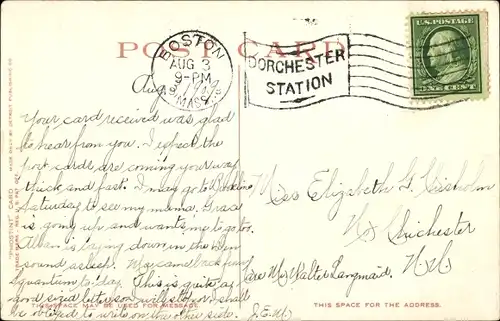 POST CARD
BOSTON
AUG 3
9-PM
MASS.
DORCHESTER
STATION
U.S. POSTAGE
ONE CENT
Aug.
Your card received was glad
to hear from you. I expect the
post cards are coming your way
thick and fast. I may go to Brookline
Saturday to see my mama. Grace
is going up and wants me to go to.
is laying down in the den
sound asleep. May came back from
Squantum to-day. This is quite a
good sized letter son will stop or I shall
be obliged to write on the other side.
J.E.M.
THIS SPACE MAY BE USED FOR MESSAGE.
Miss Elizabeth G. Chisholm
No Chichester
N.H.
care Mrs Walter Langmaid
THIS SPACE FOR THE ADDRESS.
"PHOSTINT" CARD
MADE ONLY BY DETROIT PUBLISHING CO.